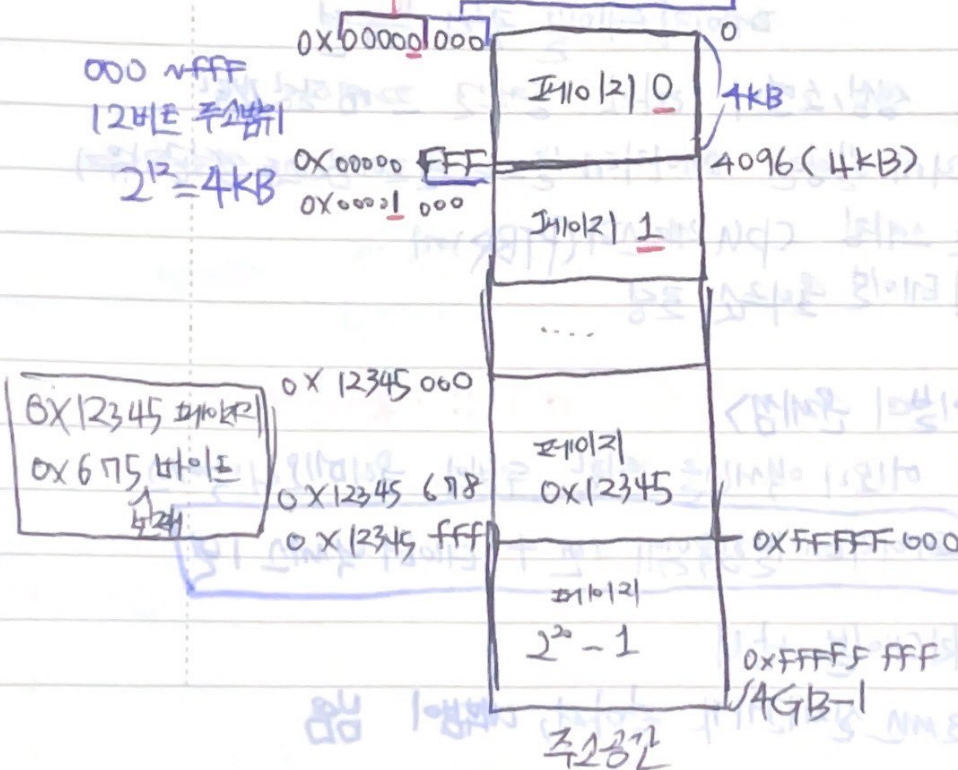 0X00000 000
0
000 ~ fff
12비트 주소범위
2¹²=4KB
페이지 0
4KB
0X00000 FFF
4096 (4KB)
0X00001 000
페이지 1
....
0X 12345 000
0X12345 페이지
0X675 바이트
페이지
0X12345
0X12345 678
0X12345 fff
0XFFFFF 000
페이지
2²⁰ - 1
0XFFFFF FFF
4GB-1
주소공간